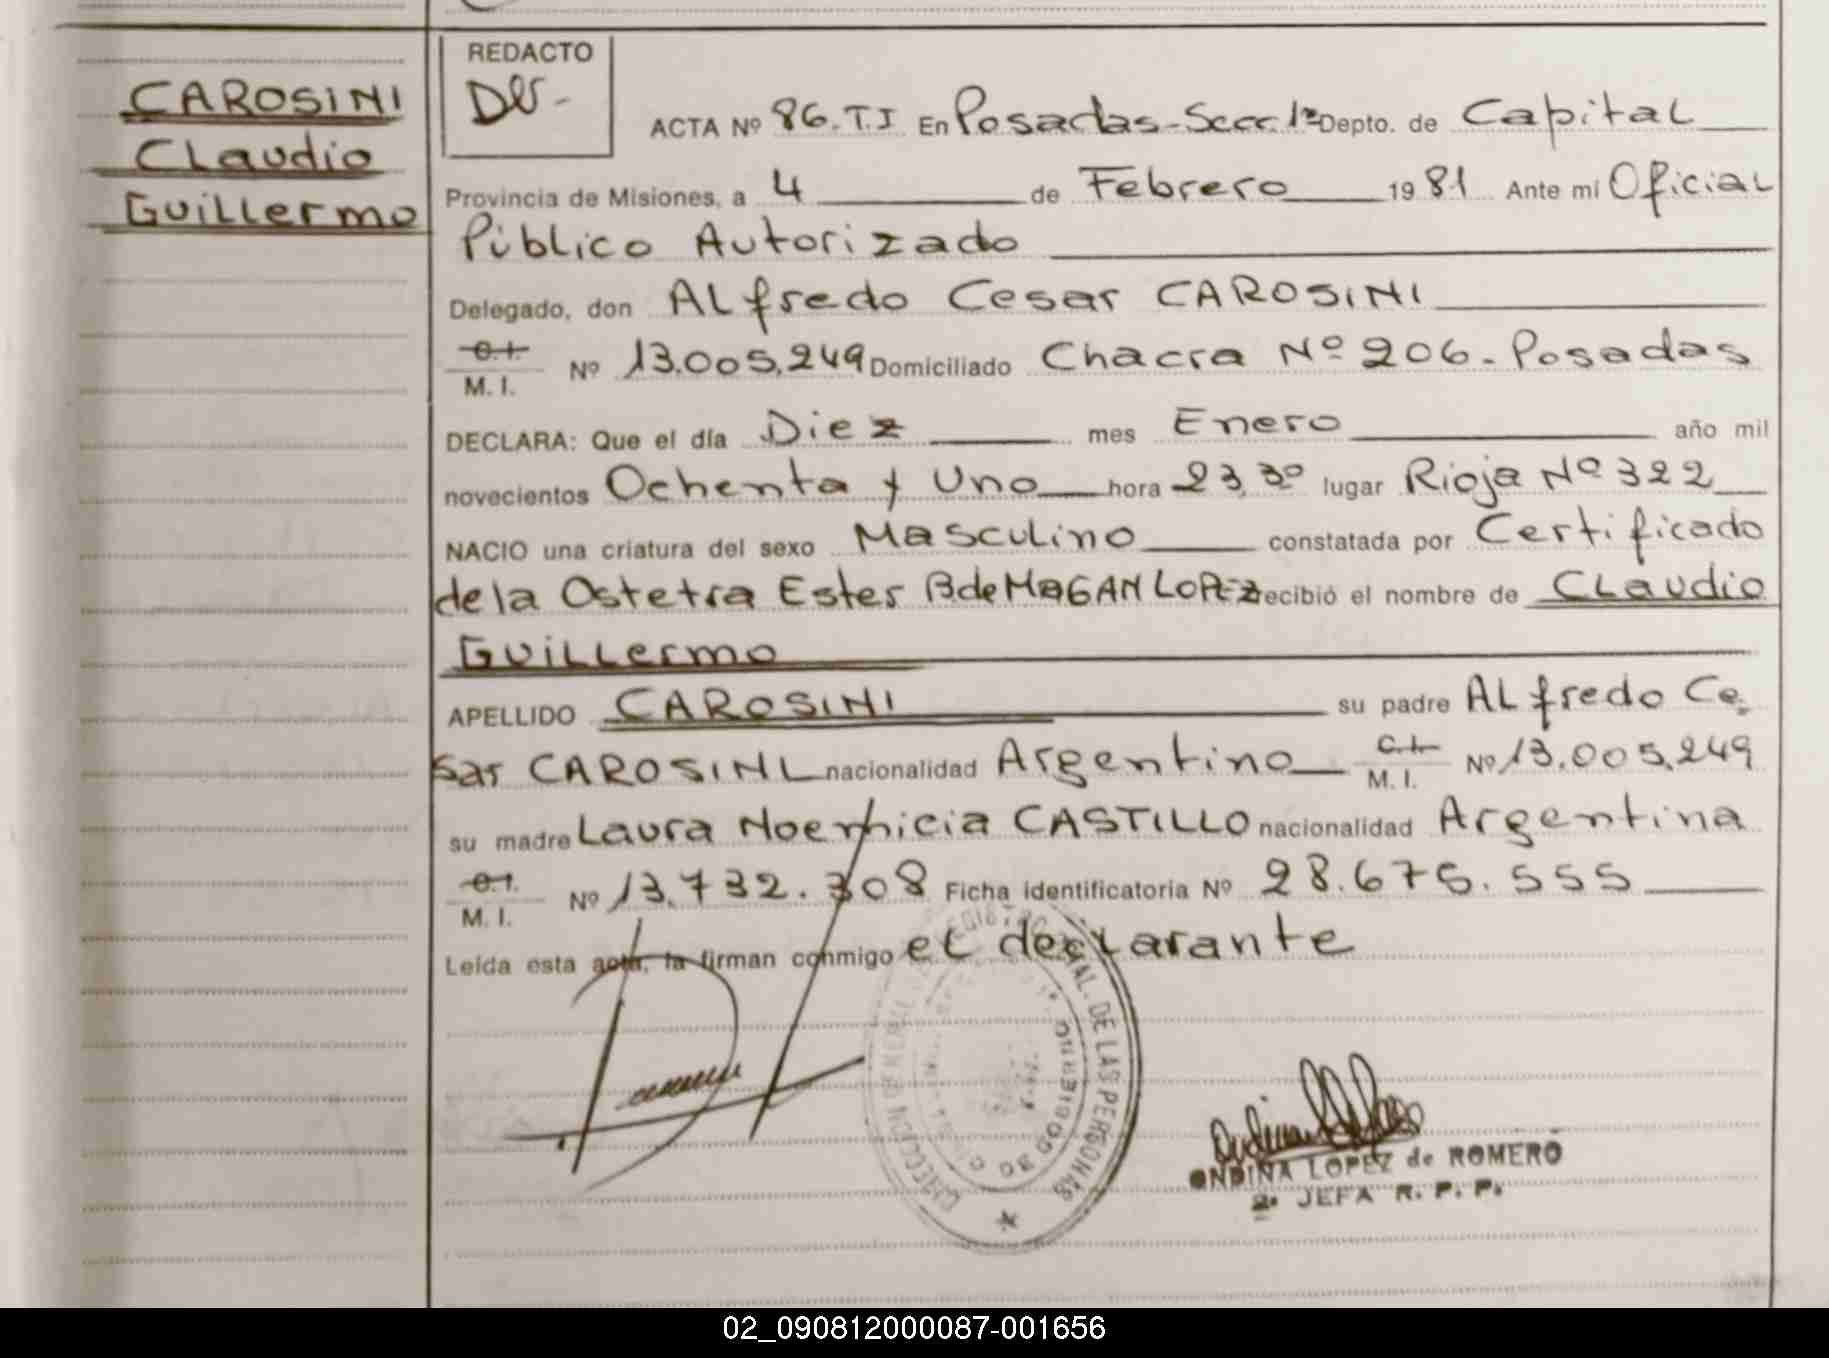 REDACTO
CAROSINI
Claudio
Guillermo
ACTA Nº 86.T.I En Posadas-Secc.1ª Depto. de Capital
Provincia de Misiones, a 4 de Febrero 1981 Ante mí Oficial
Público Autorizado
Delegado, don Alfredo Cesar CAROSINI
C.I. M. I. Nº 13.005.249 Domiciliado Chacra Nº 206-Posadas
DECLARA: Que el día Diez mes Enero año mil
novecientos Ochenta y Uno hora 23,30 lugar Rioja Nº 322
NACIO una criatura del sexo Masculino constatada por Certificado
de la Ostetra Ester B de MAGAN LOPEZ recibió el nombre de Claudio
Guillermo
APELLIDO CAROSINI su padre Alfredo Ce-
sar CAROSINI nacionalidad Argentino C.I. M. I. Nº 13.005.249
su madre Laura CASTILLO nacionalidad Argentina
C.I. M. I. Nº 13.732.308 Ficha identificatoria Nº 28.675.555
Leída esta acta, la firman conmigo el declarante
DIRECCION GENERAL DE LAS PERSONAS
DE GOBIERNO
ONDINA LOPEZ de ROMERO
2ª JEFA R. P. P.
02_090812000087-001656